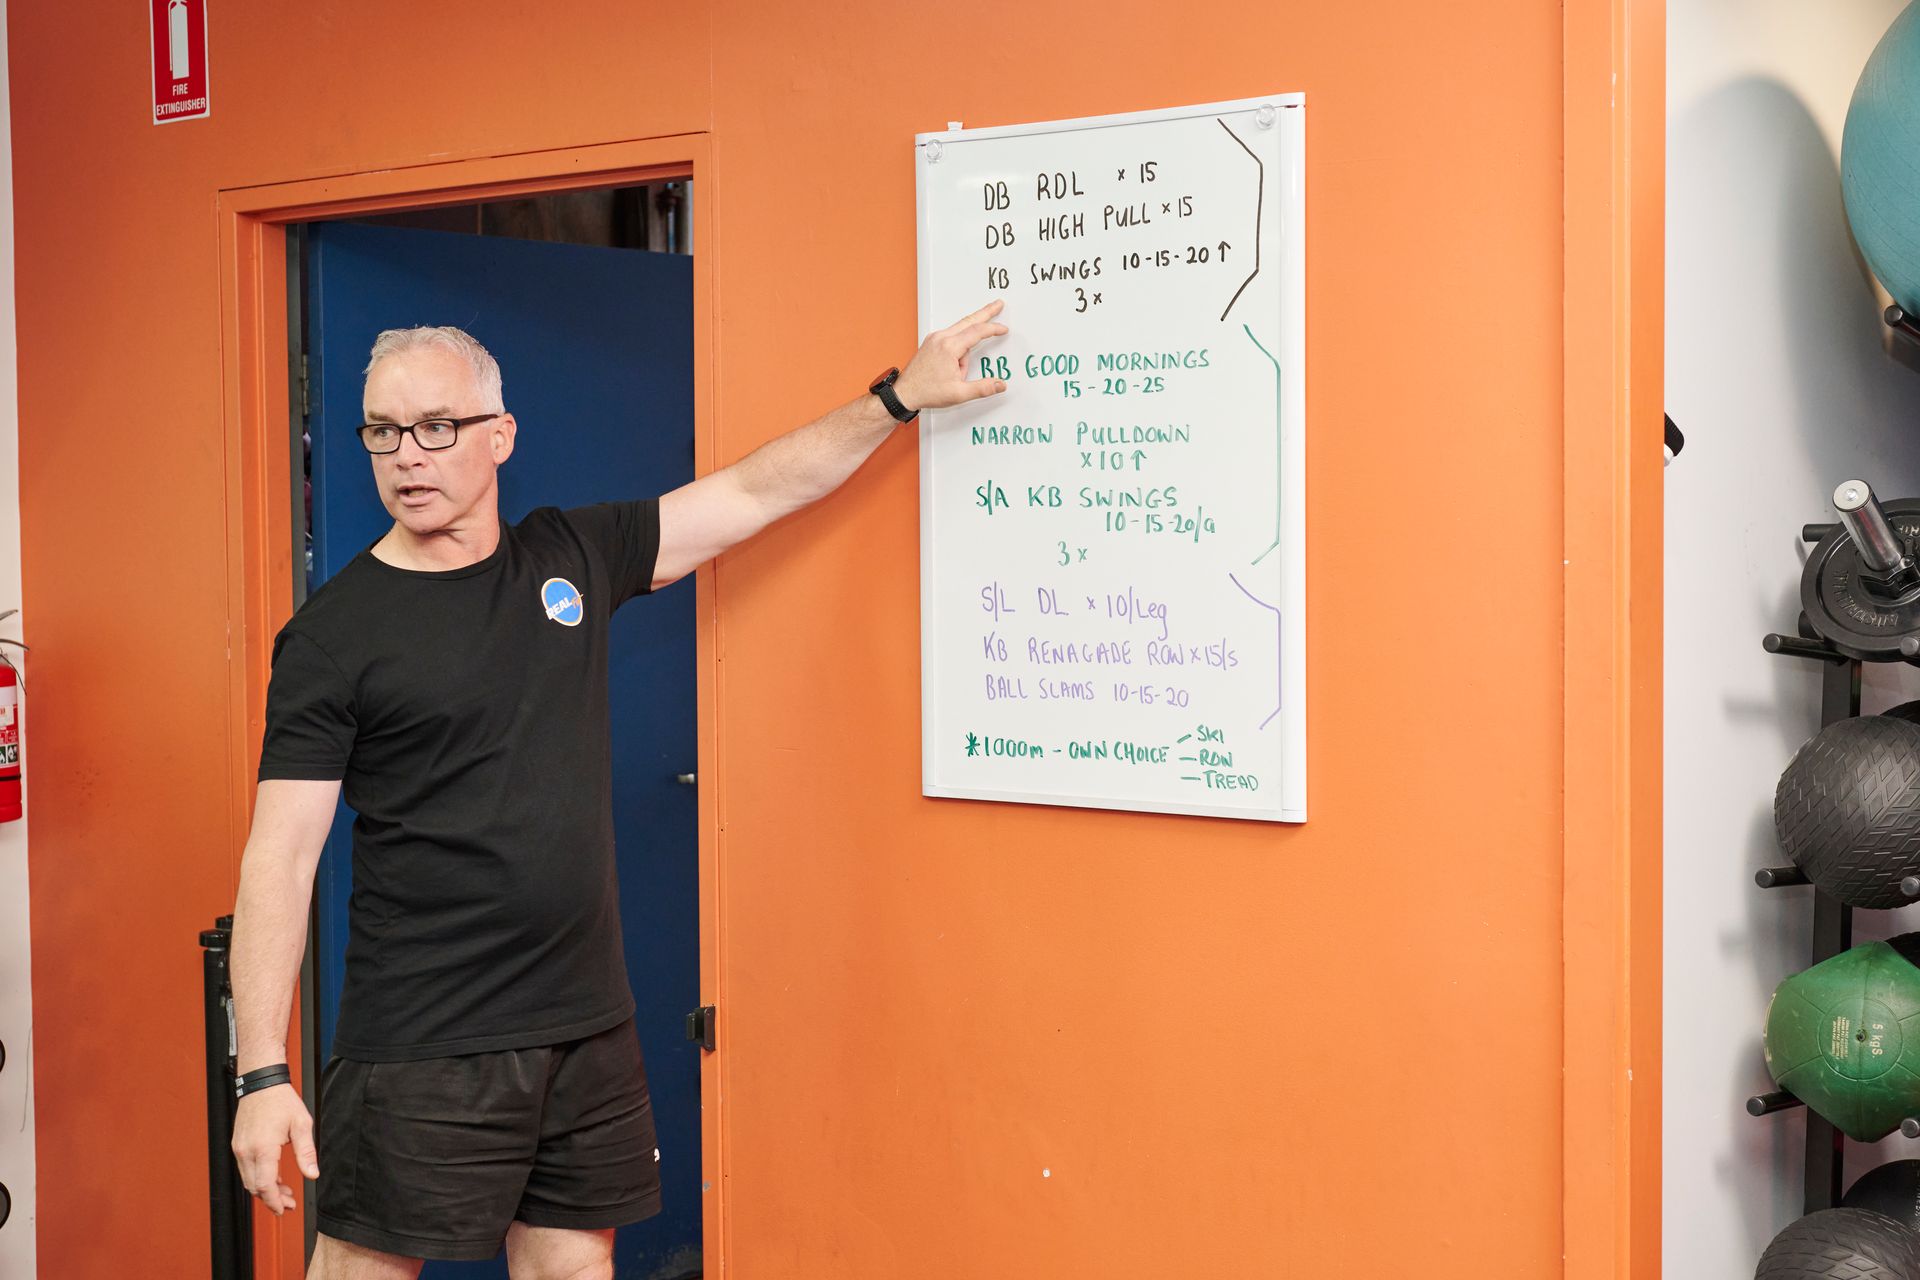 FIRE
EXTINGUISHER
DB RDL × 15
DB HIGH PULL × 15
KB SWINGS 10-15-20 ↑
3 ×
BB GOOD MORNINGS
15 - 20 - 25
NARROW PULLDOWN
× 10 ↑
S/A KB SWINGS
10-15-20/a
3 ×
S/L DL × 10/Leg
KB RENAGADE ROW × 15/s
BALL SLAMS 10-15-20
*1000m - OWN CHOICE - SKI
- ROW
- TREAD
REAL
5 kgs.